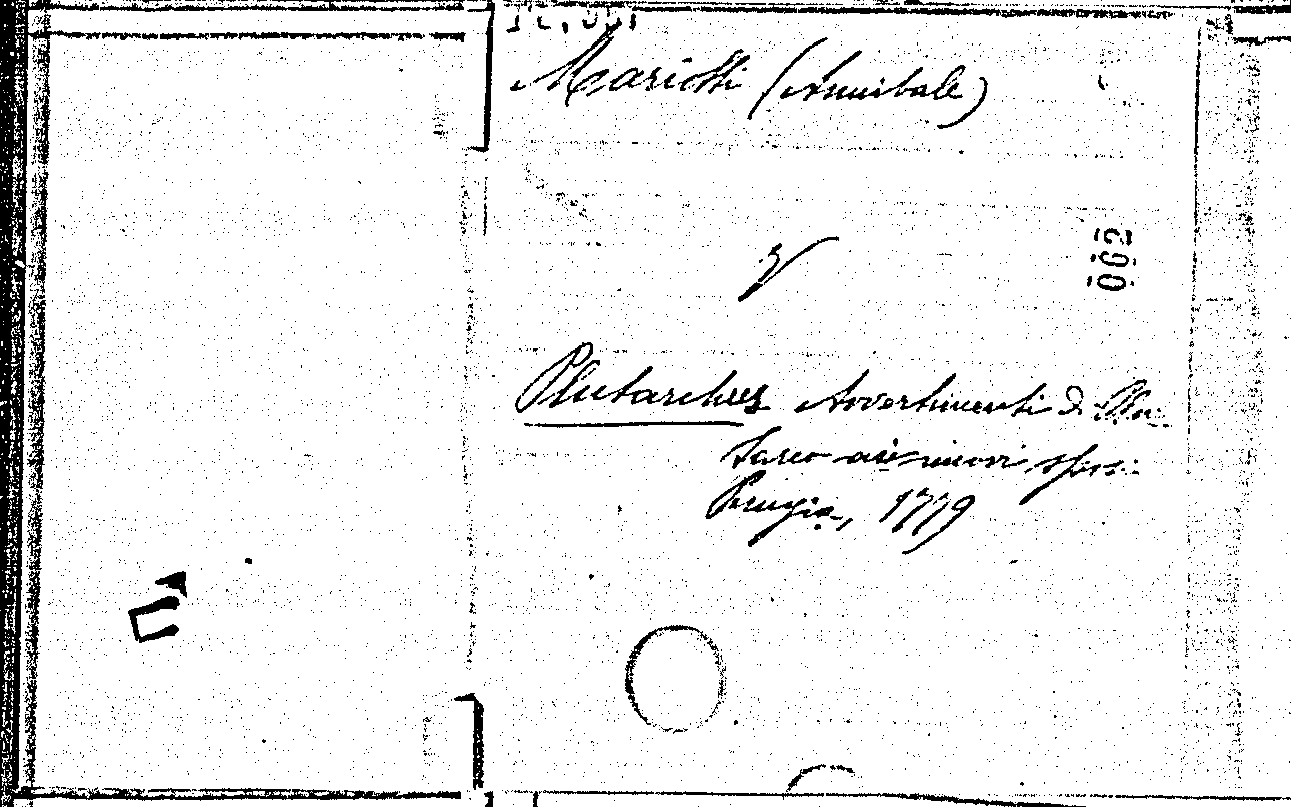 Mariotti (Annibale)
V
062
Plutarchus Avvertimenti di Plu-
tarco ai nuovi sposi.
Perugia, 1779